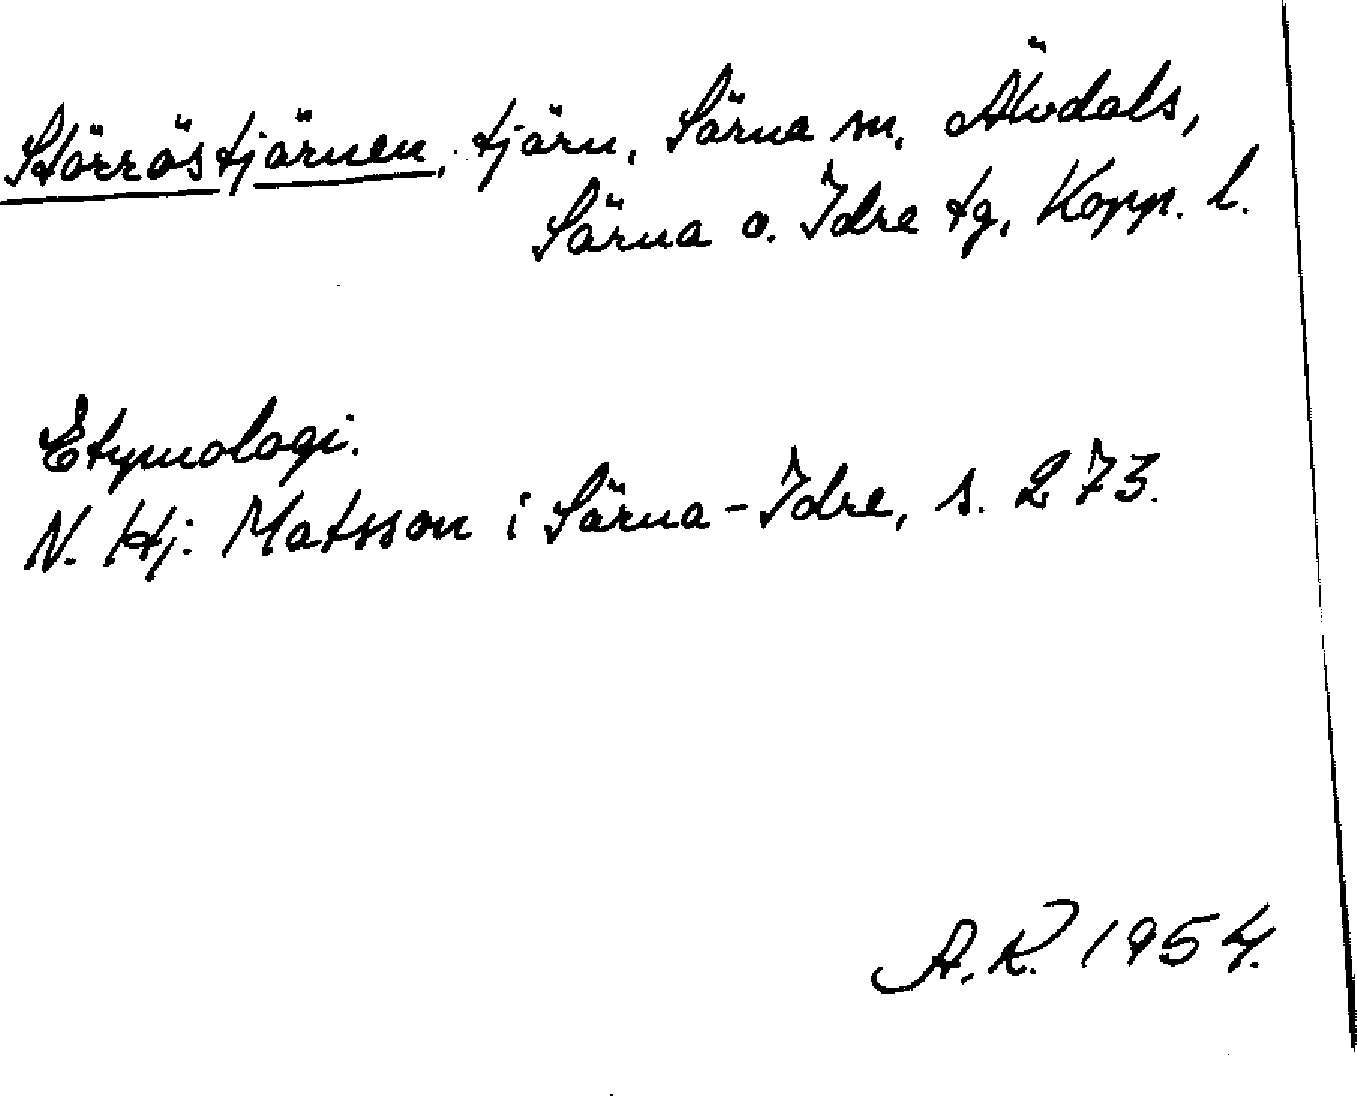 Störröstjärnen, tjärn, Särna sn, Älvdals,
Särna o. Idre tg, Kopp. l.
Etymologi.
N. Hj. Matsson i Särna-Idre, s. 273.
A.R. 1954.